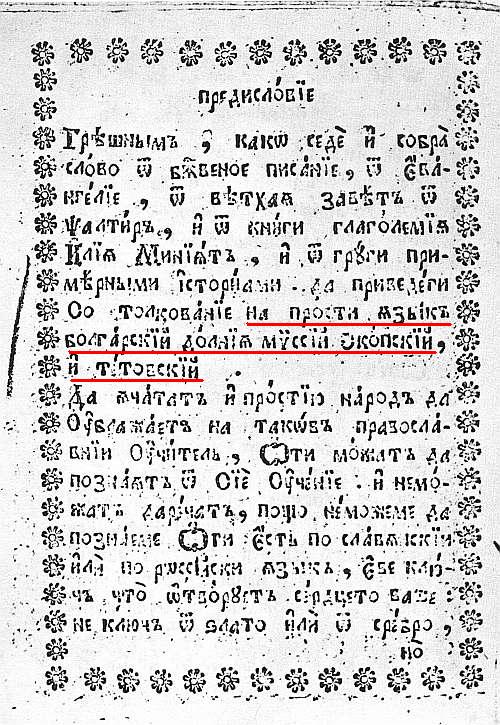 предисло́вїе
Грѣшнымъ , какѡ седѐ и҆ собра̀
слово ѿ бж҃веное писанїе, ѿ Є҆ѵа-
нгелїе , ѿ вѣтхаѧ завѣтъ ѿ
Ѱалти́ръ , и҆ ѿ кни́ги глаголемїѧ
И҆лїѧ Минїѧтъ , и҆ ѿ грꙋги при-
мѣрными і҆сторїами . да приведе́ги
Со толкова́нїе на прости ѧзы́къ
болга́рскїй до́лнїѧ мѷссїй Ско́пскїй ,
и҆ те́товскїй .
Да ѧ҆ча́татъ и҆ прості́ю наро́дъ да
Оу҆бража́етъ на тако́въ правосла́-
внїи Оу҆чи́тель , Ѿти мо́жатъ да
позна́ѧтъ ѿ Сїѐ Оу҆че́нїе . и҆ немо́-
жатъ дари́чатъ, по́що не́можеме да
позна́еме Ѿти є҆́сть по сла́вѧнскїй
и҆лѝ по рꙋссі́йски ѧ҆зы́къ , є҆́ве клю́-
чъ что̀ ѿтво́рꙋетъ се́рдцето ва́ше :
не клю́чъ ѿ злато и҆лѝ ѿ сре́бро ,
но̀